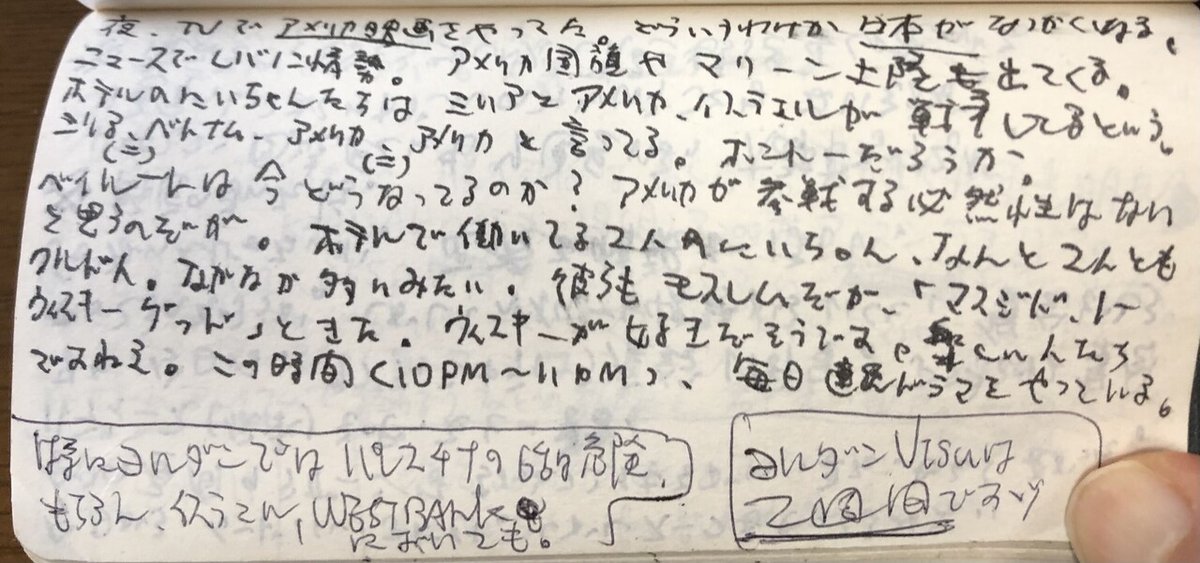 夜、TVでアメリカ映画をやってた。どういうわけか日本がなつかしくなる。
ニュースでレバノン情勢。アメリカ国旗やマリーン出てくる。
ホテルのにいちゃんたちは、シリアとアメリカ、イスラエルが戦争してるという。
ベトナム アメリカ アメリカと言ってる。ホントーだろうか。
(ニ) (ニ)
ベイルートは今どうなってるのか？アメリカが参戦する必然性はない
と思うのだが。ホテルで働いてる2人のにいちゃん、なんと2人とも
クルド人。なかなか多いみたい。彼らもモスレムだが、「マスジド、ノー
ウィスキーグッド」ときた。ウィスキーが好きだそうである。
ですねえ。この時間(10PM～11PM)、毎日ドラマをやっている。
特にヨルダンではパレスチナの話は危険
もちろん、イスラエル、WEST BANKにおいても。
ヨルダンVISAは
2週間です